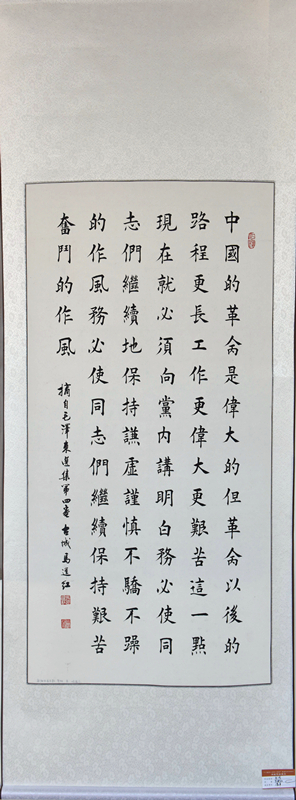 中國的革命是偉大的但革命以後的
路程更長工作更偉大更艱苦這一點
現在就必須向黨內講明白務必使同
志們繼續地保持謙虛謹慎不驕不躁
的作風務必使同志們繼續保持艱苦
奮鬥的作風
摘自毛澤東選集第四卷